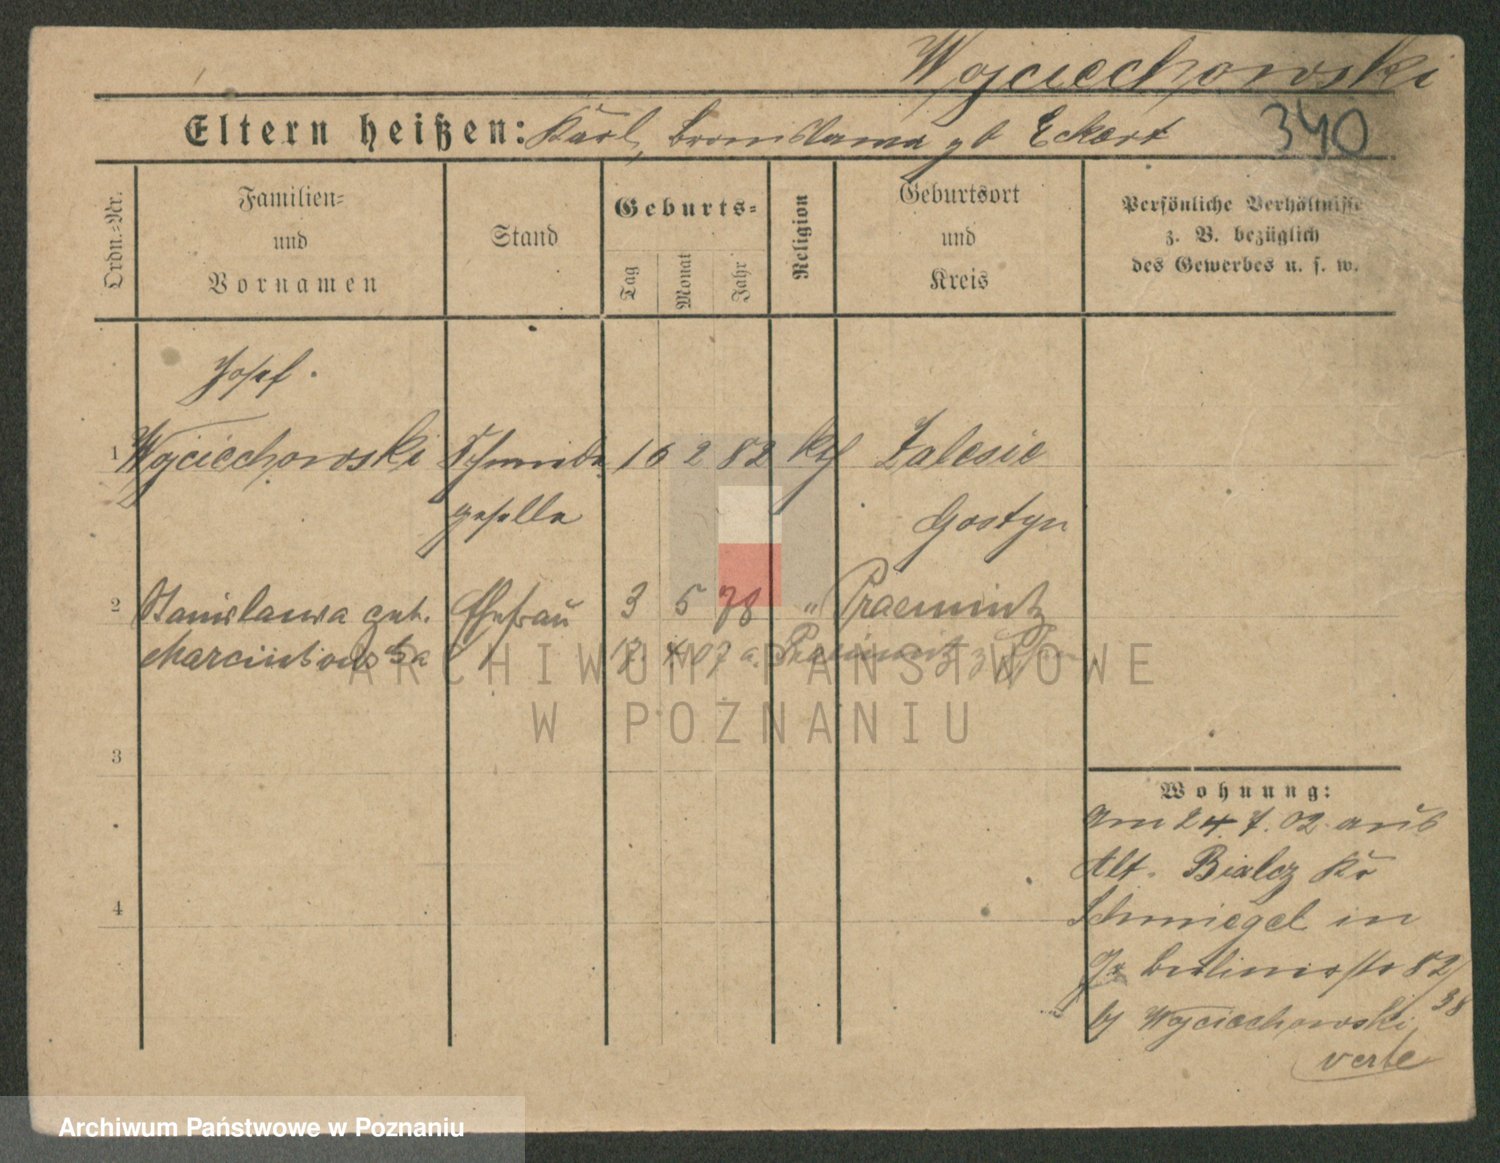 Wojciechowski
340
Eltern heißen: Karl, Bronislawa gb Eckert
Ordn.-Nr.
Familien-
und
Vornamen
Stand
Geburts-
Tag
Monat
Jahr
Religion
Geburtsort
und
Kreis
Persönliche Verhältnisse
z. B. bezüglich
des Gewerbes u. s. w.
Josef.
1 Wojciechowski Schmiede 16 2 82 kth Zalesie
geselle Gostyn
2 Stanislawa geb. Ehefrau 3 5 78 " Praemnitz
Marcinkowska 17. 4 07 a. Praemnitz
3
4
Wohnung:
Am 24 7. 02. aus
Alt. Bialcz Kr
Schmiegel in
berlinerstr 82/
38
by Wojciechowski
verte
ARCHIWUM PAŃSTWOWE
W POZNANIU
Archiwum Państwowe w Poznaniu